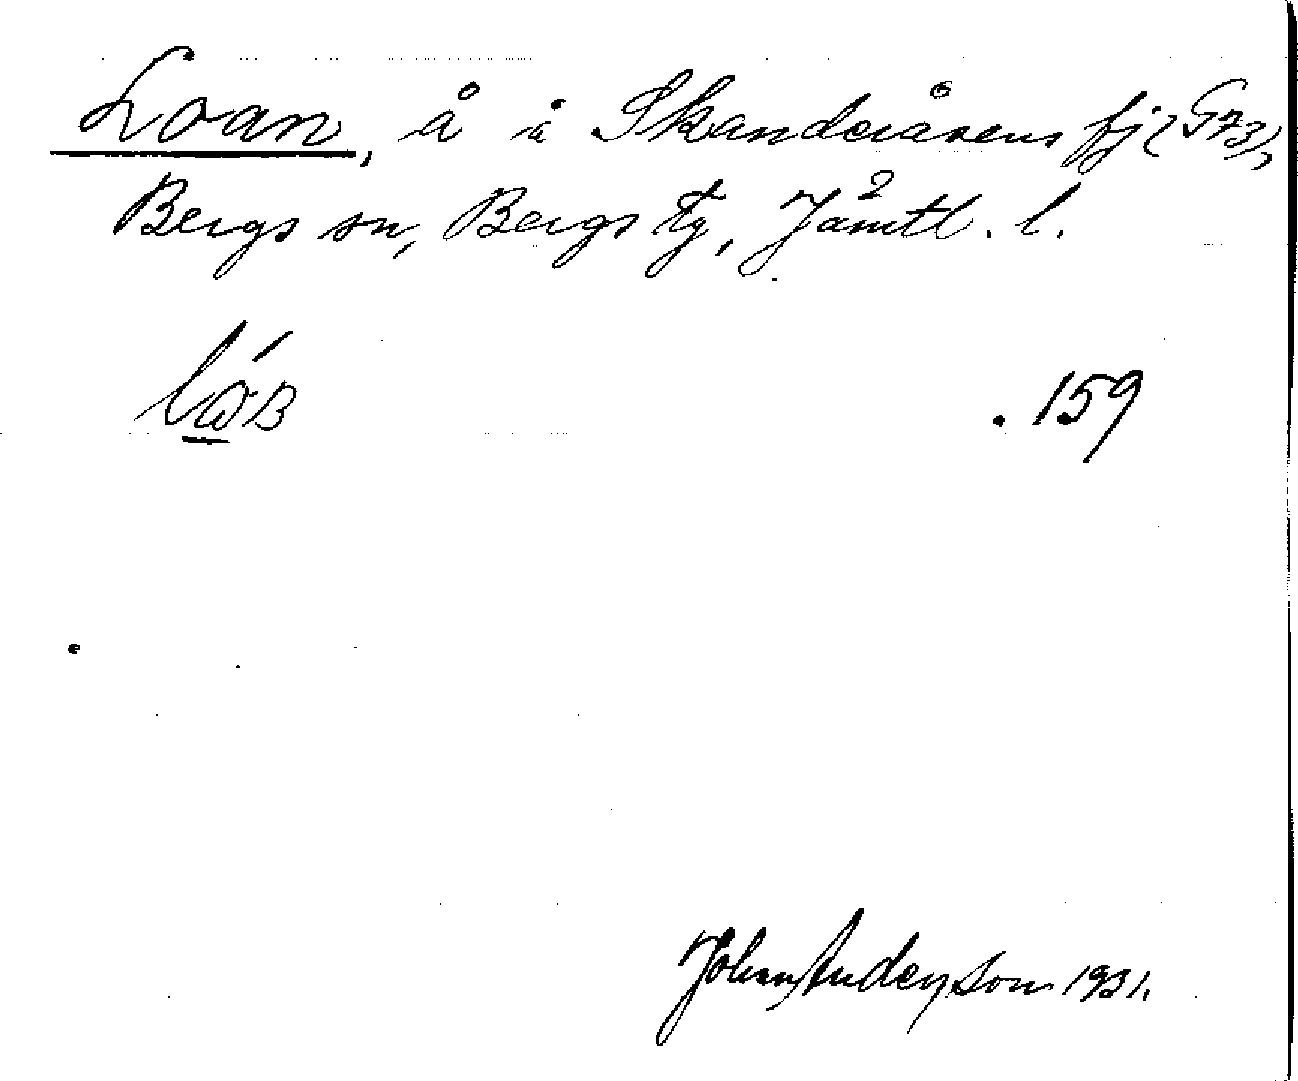 Loan, å i Skanderåsens fj (G 73),
Bergs sn, Bergs tg, Jämtl. l.
159
Johan Anderson 1931.